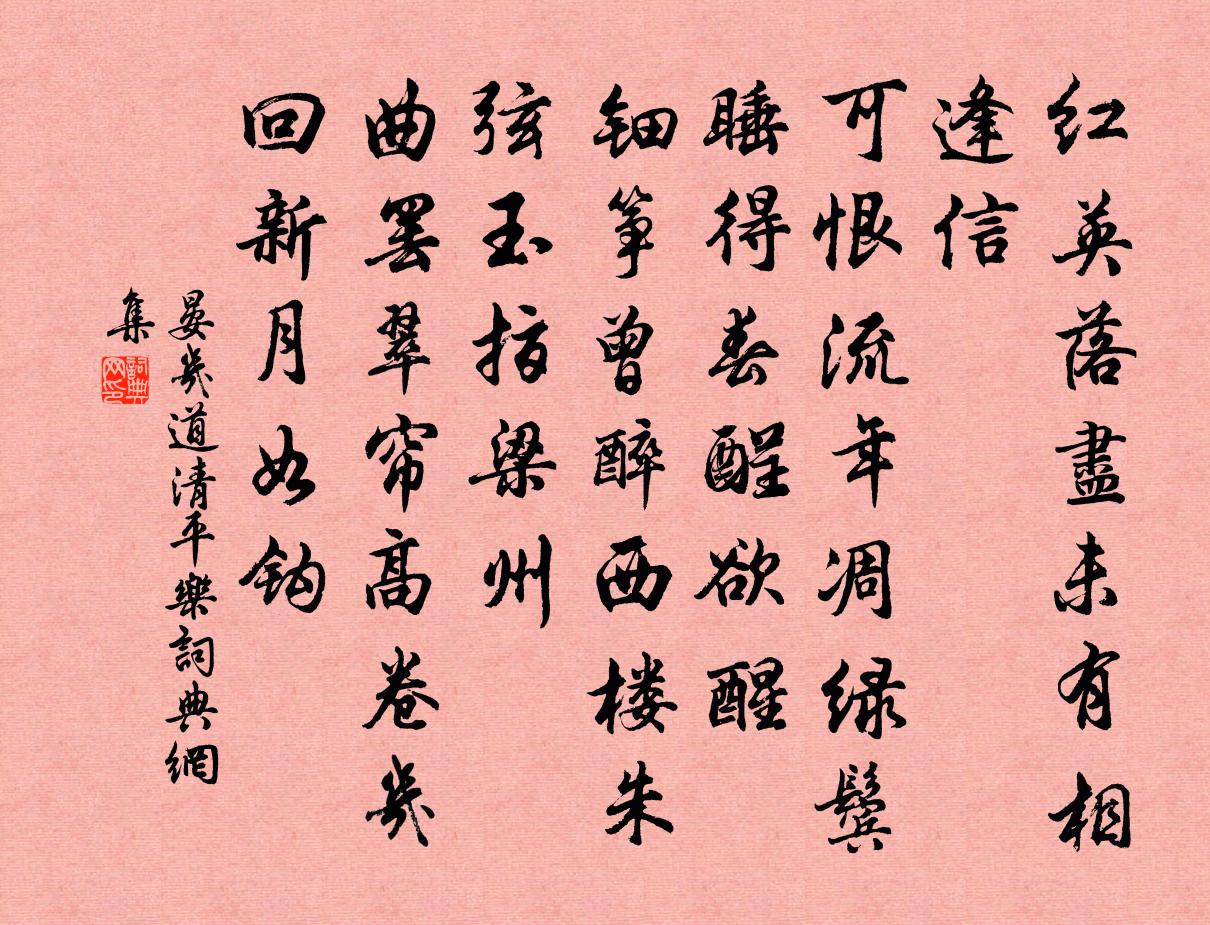 红英落盡未有相
逢信
可恨流年凋绿鬓
睡得春酲欲醒
钿筝曾醉西楼朱
弦玉指梁州
曲罢翠帘高卷幾
回新月如钩
晏幾道清平樂詞典網
集
詞典網印